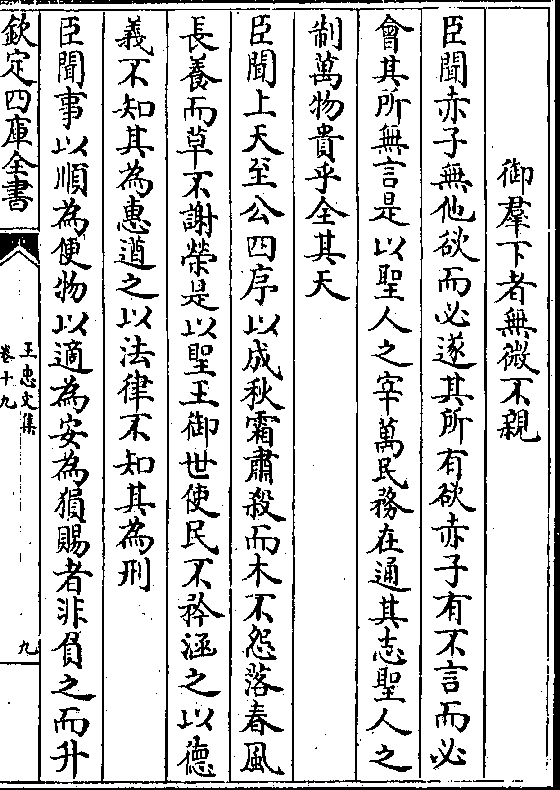 御羣下者無微不親
臣聞赤子無他欲而必遂其所有欲赤子有不言而必
會其所無言是以聖人之宰萬民務在通其志聖人之
制萬物貴乎全其天
臣聞上天至公四序以成秋霜肅殺而木不怨落春風
長養而草不謝榮是以聖王御世使民不矜涵之以德
義不知其為惠遒之以法律不知其為刑
臣聞事以順為便物以適為安為猨賜者非負之而升
欽定四庫全書
王忠文集
卷十九
九